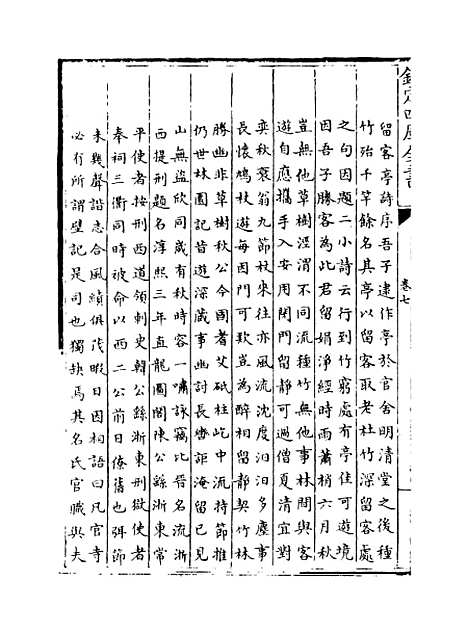 欽定四庫全書
卷七
留客亭詩序吾子建作亭於官舍明清堂之後種
竹殆千竿餘名其亭以留客取老杜竹深留客處
之句因題二小詩云行到竹窮處有亭佳可遊境
因吾子勝客為此君留娟淨經時雨蕭梢六月秋
豈無他草樹涇渭不同流種竹無他事林間與客
遊自應攜手入安用閉門留靜可過僧夏清宜對
奕秋衰翁九節杖來往亦風流沈度汨汨多塵事
長懷鳩杖遊每因門可款豈為醉相留靜契竹林
勝幽非草樹秋公今國耆艾砥柱屹中流持節推
仍世林園記昔遊深藏事幽討長嘯詎淹留已見
山無盜欣同歲有秋時容一嘯詠竊比晉名流浙
西提刑題名淳熙三年直龍圖閣陳公繇浙東常
平使者按刑西道領刺史韓公繇浙東刑獄使者
奉祠三衢同時被命以西二公前日僚舊也弭節
未幾聲諧志合風績俱茂暇日因相語曰凡官寺
必有所謂壁記是司也獨缺焉其名氏官職與夫